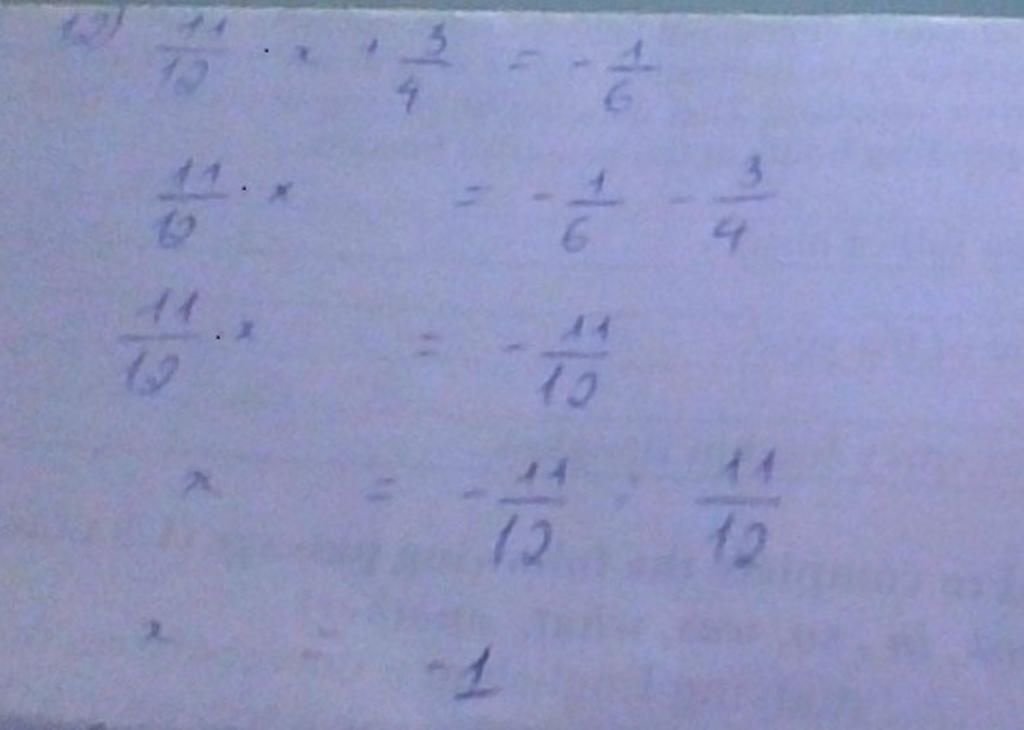 12) 11/12 · x + 3/4 = - 1/6
11/12 · x = - 1/6 - 3/4
11/12 · x = - 11/12
x = - 11/12 : 11/12
x = -1